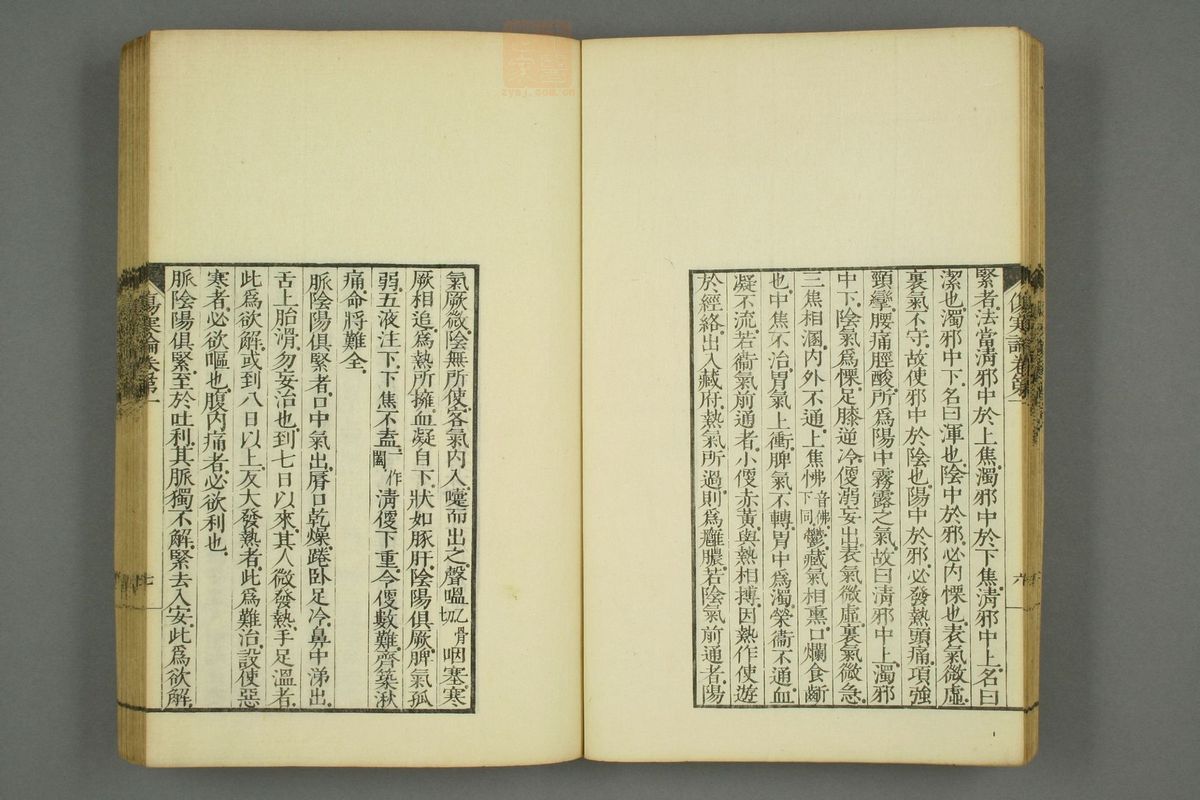 緊者法當清邪中於上焦濁邪中於下焦清邪中上名曰
潔也濁邪中下名曰渾也陰中於邪必內慄也表氣微虛
裏氣不守故使邪中於陰也陽中於邪必發熱頭痛項強
頸攣腰痛脛酸所爲陽中霧露之氣故曰清邪中上濁邪
中下陰氣爲慄足膝逆冷㑻溺妄出表氣微虛裏氣微急
三焦相溷內外不通上焦怫音佛下同鬱藏氣相熏口爛食齗
也中焦不治胃氣上衝脾氣不轉胃中爲濁榮衞不通血
凝不流若衞氣前通者小㑻赤黃與熱相搏因熱作使遊
於經絡出入藏府熱氣所過則爲癰膿若陰氣前通者陽
傷寒論卷第一
六
氣厥微陰無所使客氣內入嚏而出之聲嗢乙骨切咽塞寒
厥相追爲熱所擁血凝自下狀如豚肝陰陽俱厥脾氣孤
弱五液注下下焦不盍一作闔清㑻下重令㑻數難齊築湫
痛命將難全
脈陰陽俱緊者口中氣出脣口乾燥蹉卧足冷鼻中涕出
舌上胎滑勿妄治也到七日以來其人微發熱手足溫者
此爲欲解或到八日以上反大發熱者此爲難治設使惡
寒者必欲嘔也腹內痛者必欲利也
脈陰陽俱緊至於吐利其脈獨不解緊去入安此爲欲解
傷寒論卷第一
七
zysj.com.cn